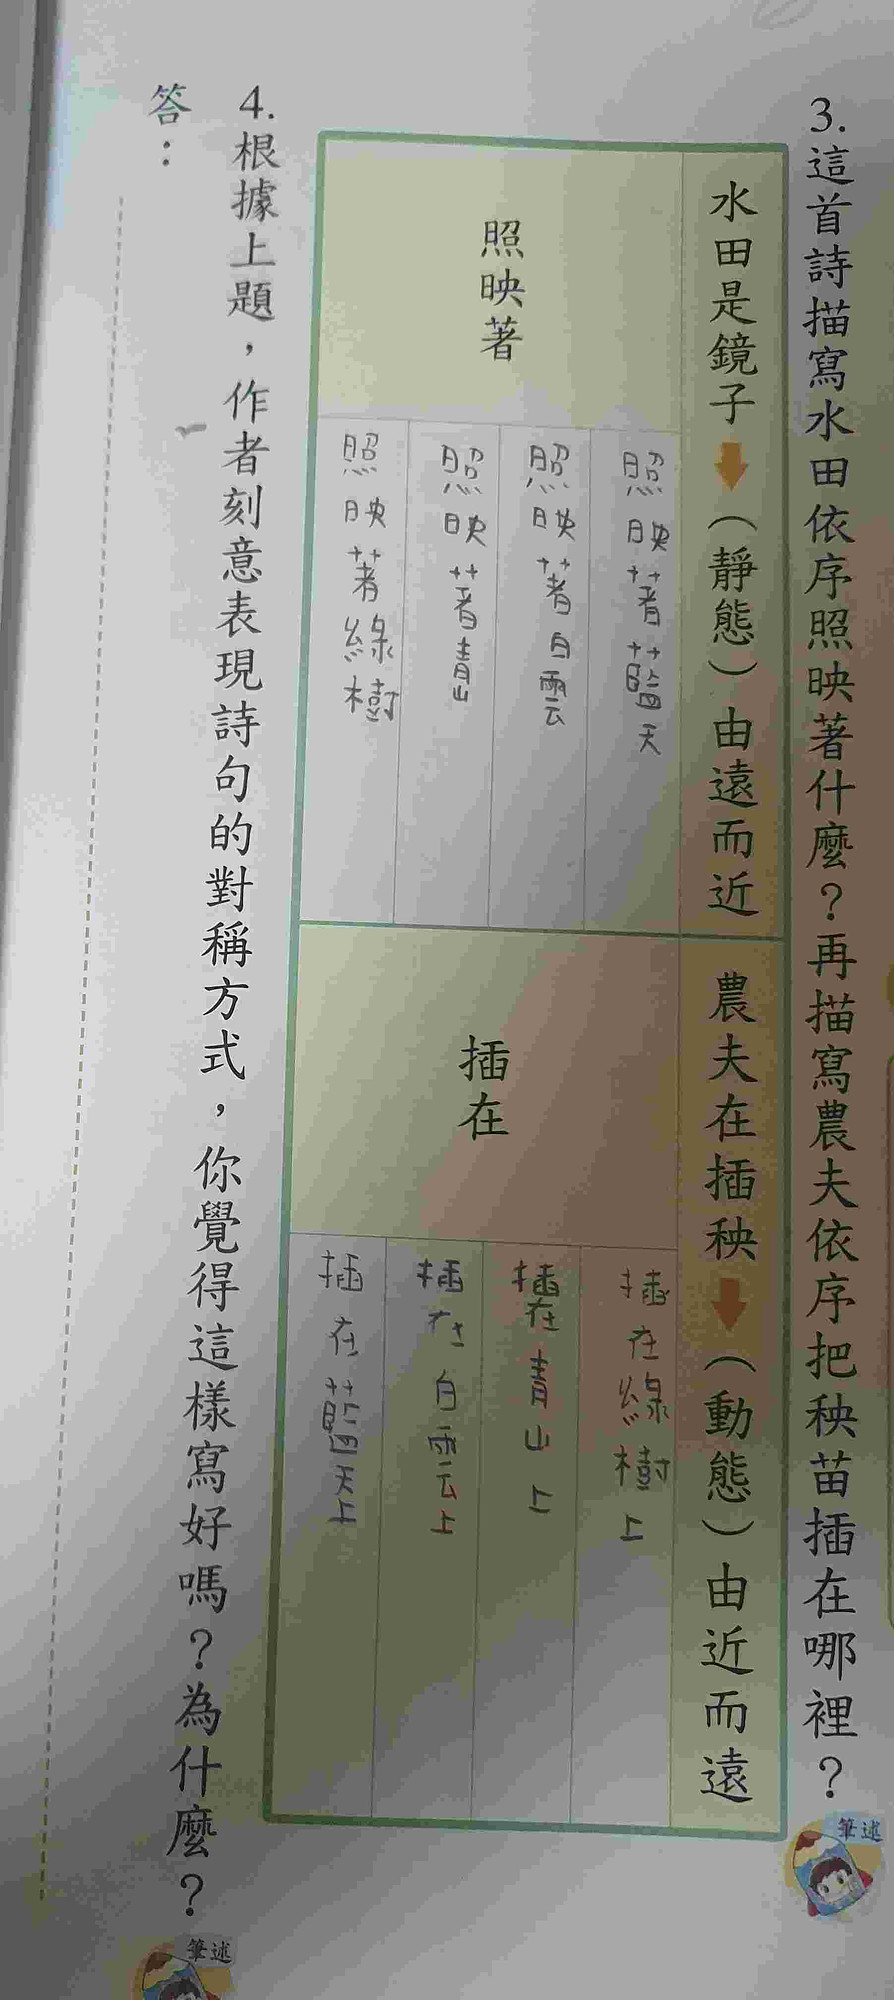 3.這首詩描寫水田依序照映著什麼？再描寫農夫依序把秧苗插在哪裡？
筆述
水田是鏡子（靜態）由遠而近
照映著
照映著藍天
照映著白雲
照映著青山
照映著綠樹
農夫在插秧（動態）由近而遠
插在
插在綠樹上
插在青山上
插在白雲上
插在藍天上
4.根據上題，作者刻意表現詩句的對稱方式，你覺得這樣寫好嗎？為什麼？
筆述
答：